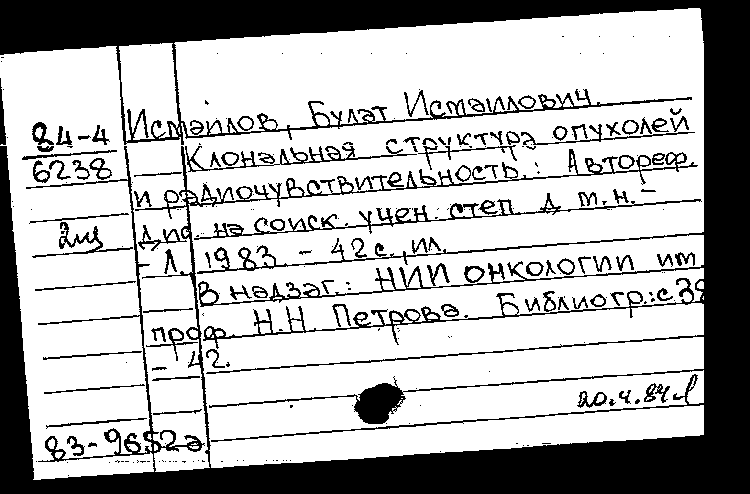 84-4
6238
2 шз
Исмаилов, Булат Исмаилович.
Клональная структура опухолей
и радиочувствительность.: Автореф.
дис. на соиск. учен. степ. д. м. н. -
- Л., 1983. - 42 с., ил.
В надзаг.: НИИ онкологии им.
проф. Н.Н. Петрова. Библиогр.: с 38
- 42.
20.4.84
83-9652а.